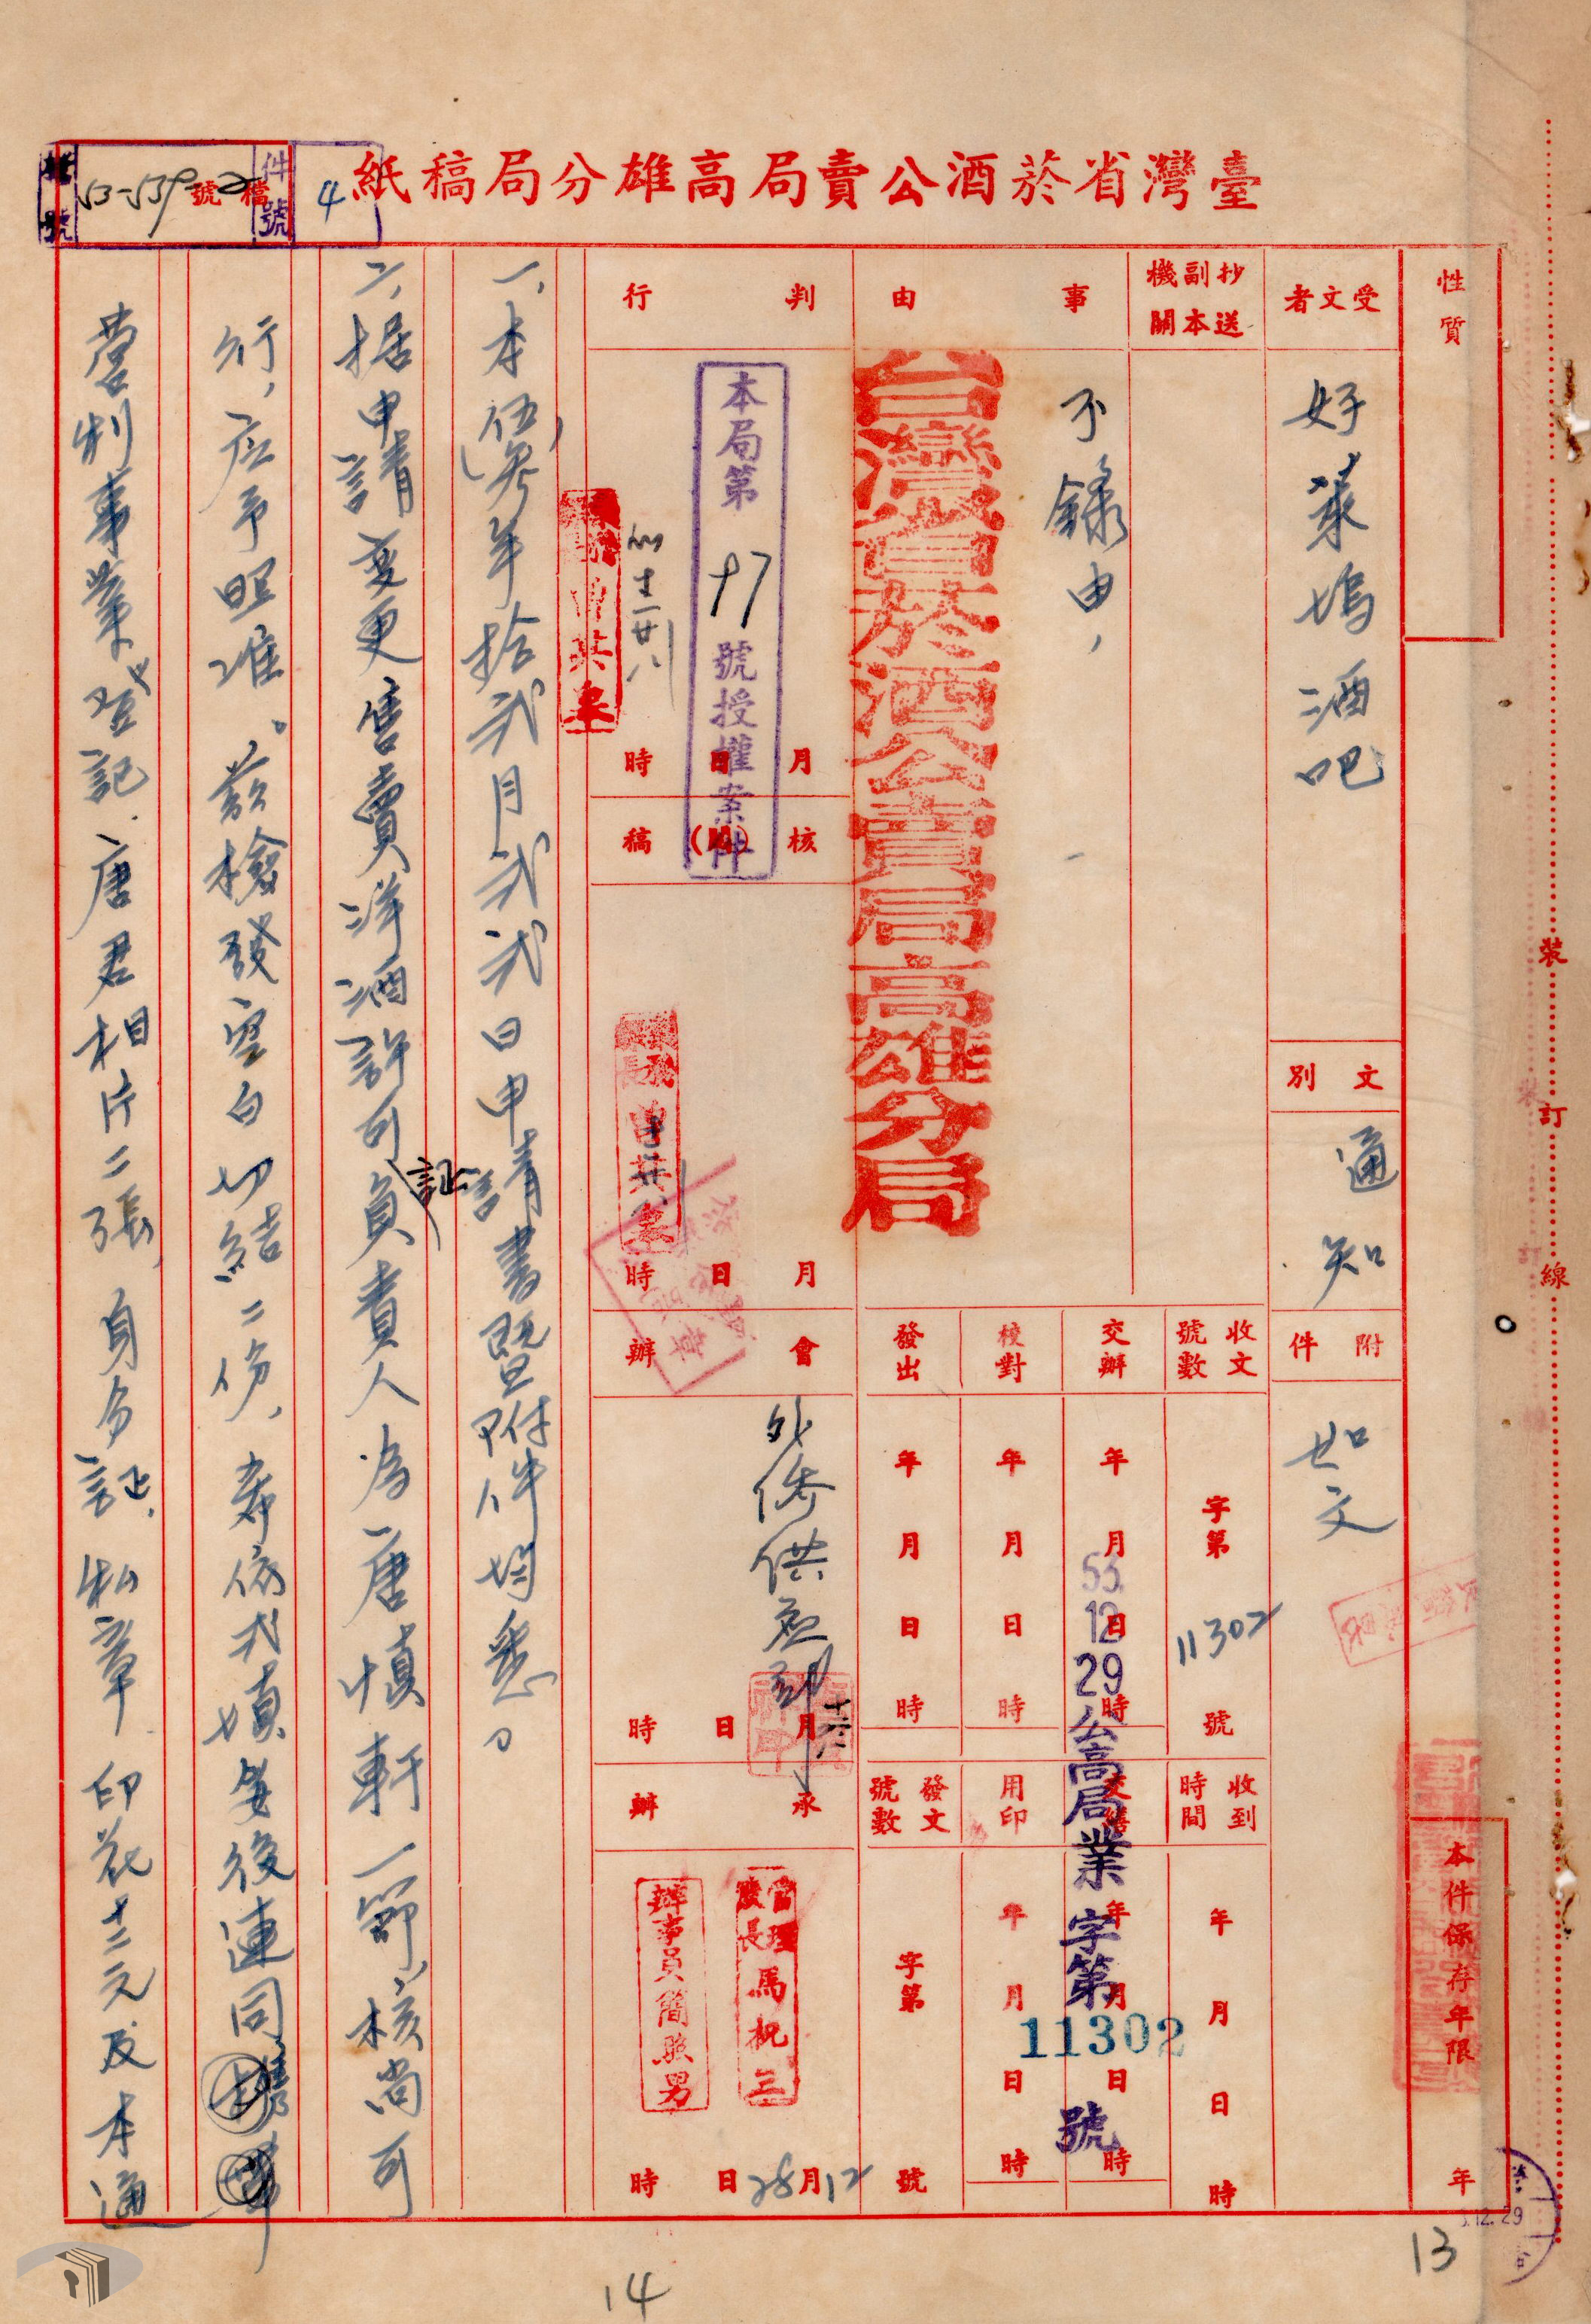 臺灣省菸酒公賣局高雄分局稿紙
檔號
53-539
號
檔
2
件號
4
性質
本件保存年限
年
受文者
好萊塢酒吧
文別
通知
附件
如文
抄送副本機關
事由
不錄由,
台灣省菸酒公賣局高雄分局
收文號數
字第
11302
號
交辦
年月日時
校對
年月日時
發出
年月日時
收到時間
年月日時
交繕
年月日時
用印
年月日時
發文號數
字第
號
53.12.29公高局業字第11302號
判行
本局第
17
號授權案件
月日時
核稿
月日時
會辦
月日時
承辦
管理股長馬祝三
辦事員簡照男
12月28日
時
一、本(伍參)年拾弍月弍弍日申請書暨附件均悉。
二、据申請变更售賣洋酒許可証負責人為唐慎軒一節,核尚可
行,应予照准。茲檢發空白切結二份,希依式填妥後連同
營利事業登記.唐君相片二張,身分証.私章.印花十二元及本通
裝訂線
13
14